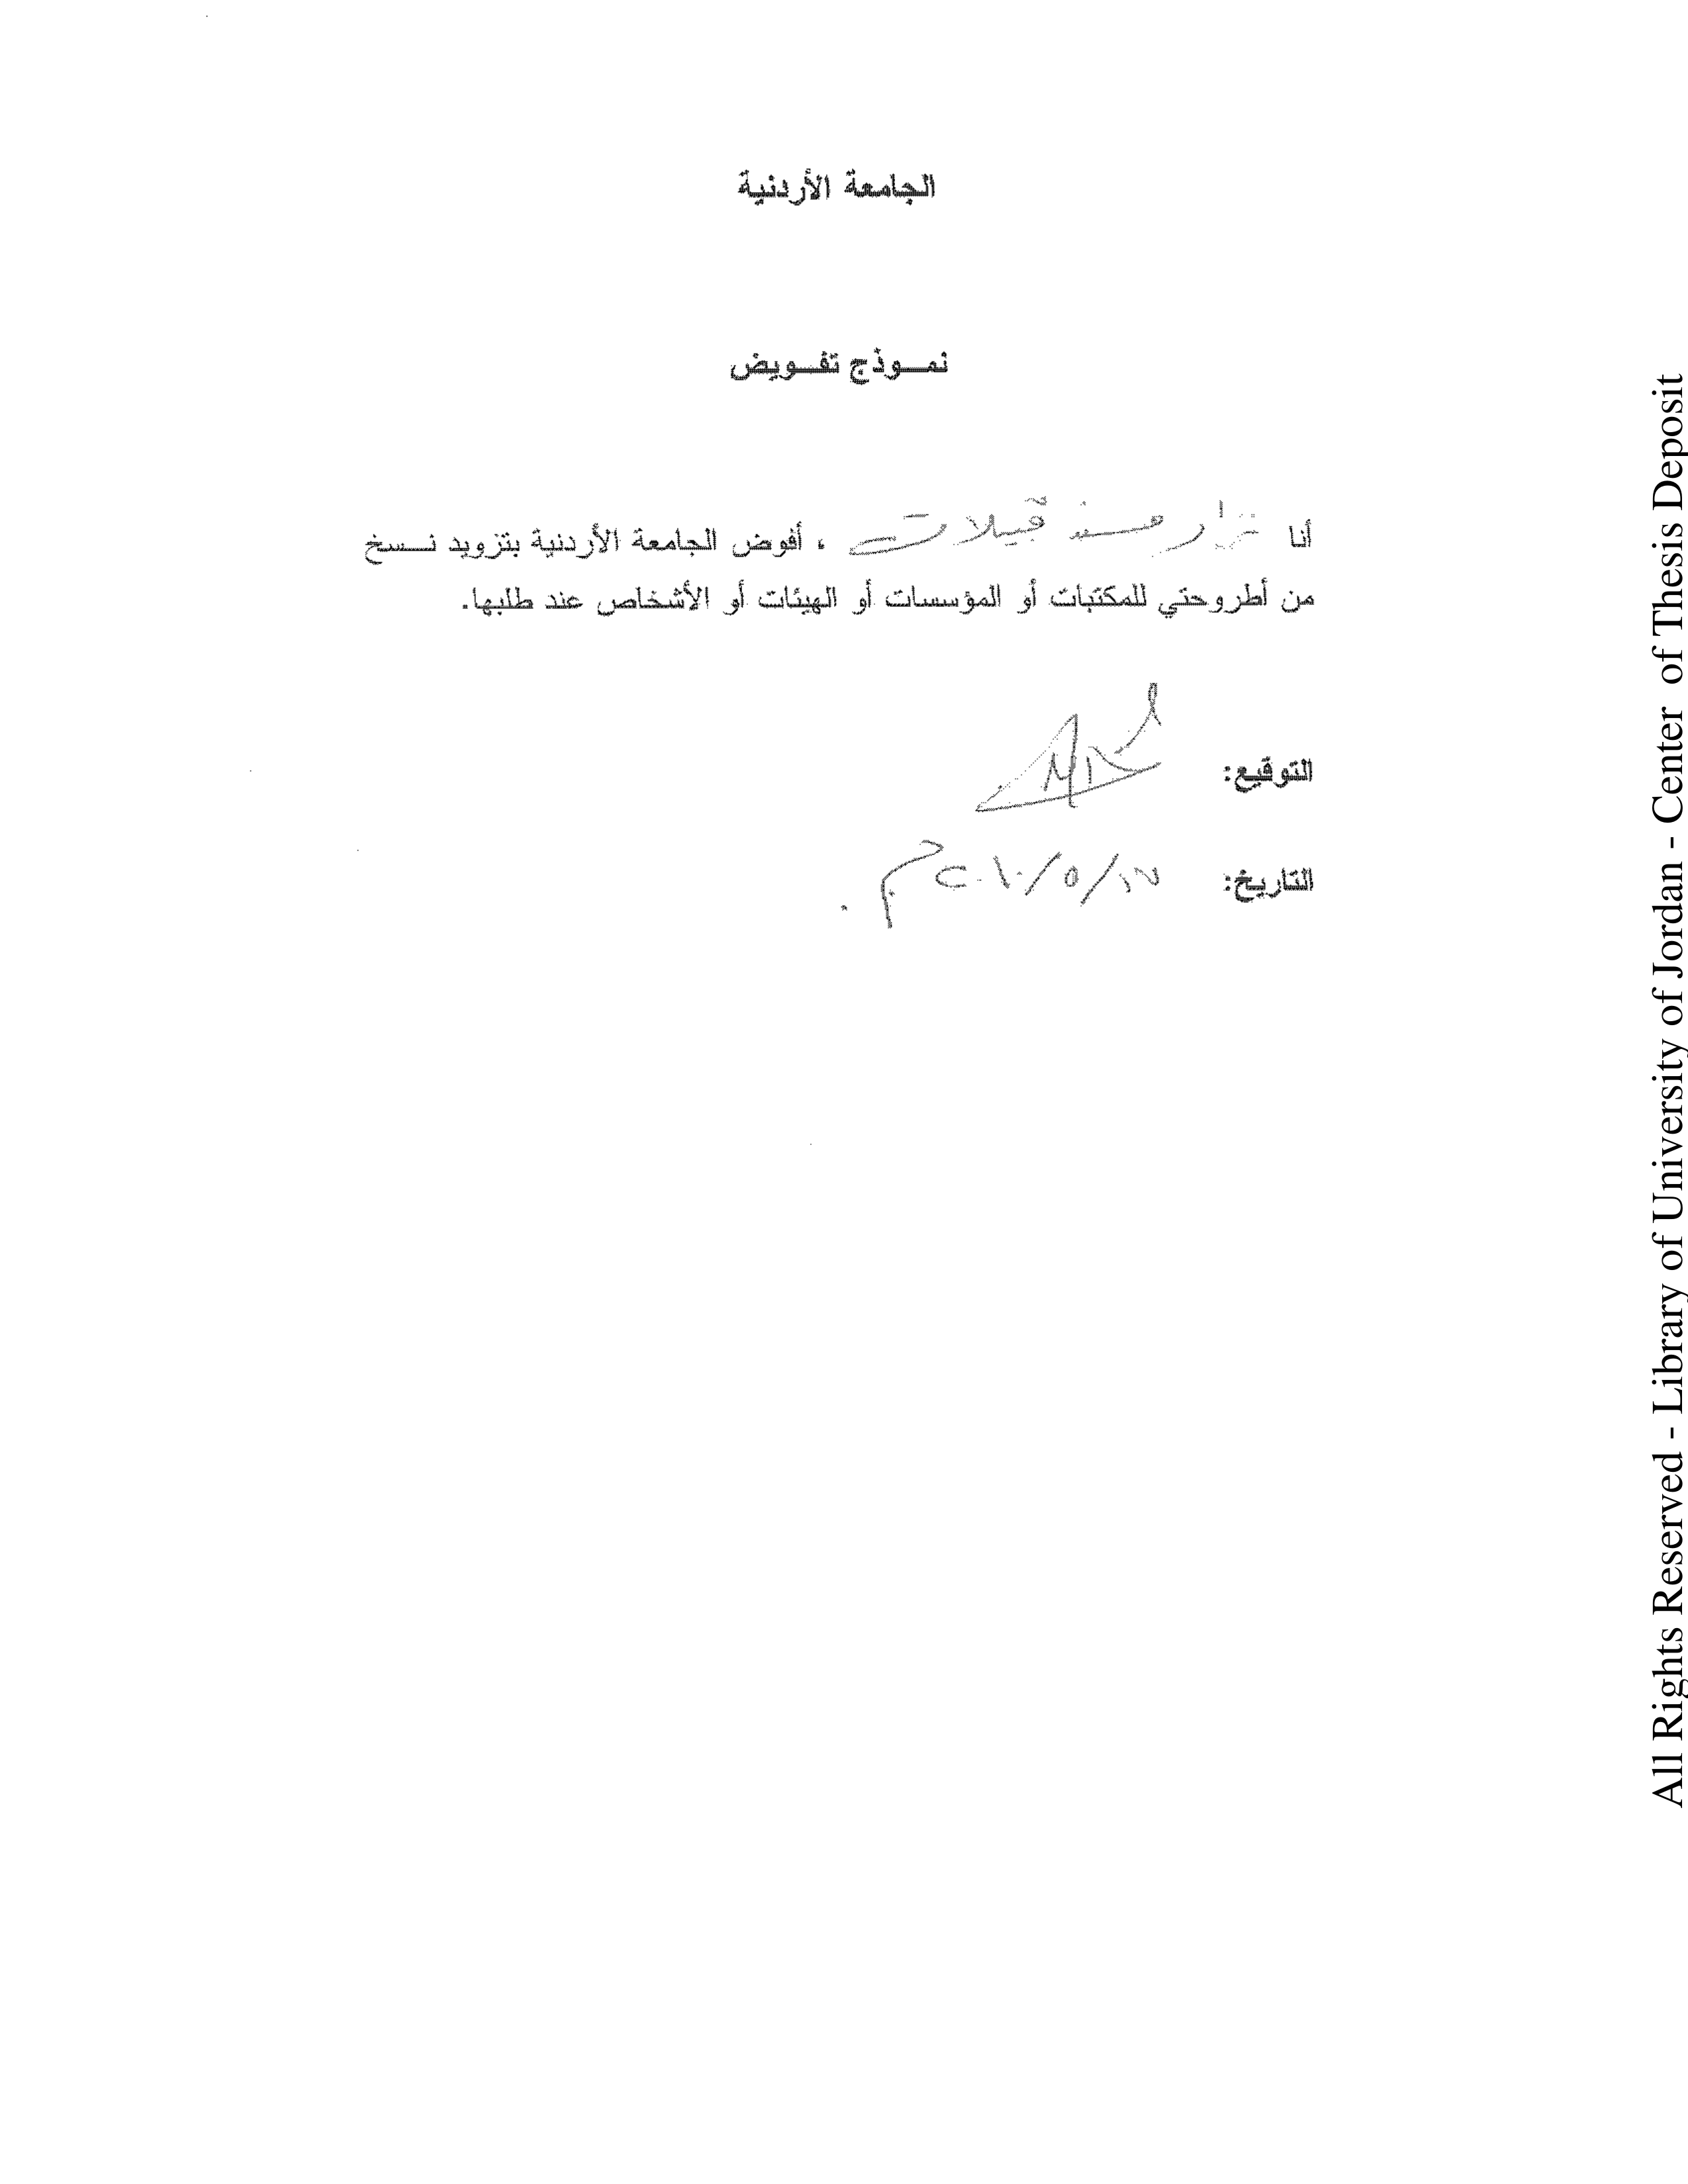 الجامعة الأردنية
نمـــوذج تفـــويض
أنا نزار قبيلات ، أفوض الجامعة الأردنية بتزويد نـــسخ
من أطروحتي للمكتبات أو المؤسسات أو الهيئات أو الأشخاص عند طلبها.
التوقيع:
التاريخ: /٥/٢٠١٠م.
All Rights Reserved - Library of University of Jordan - Center of Thesis Deposit